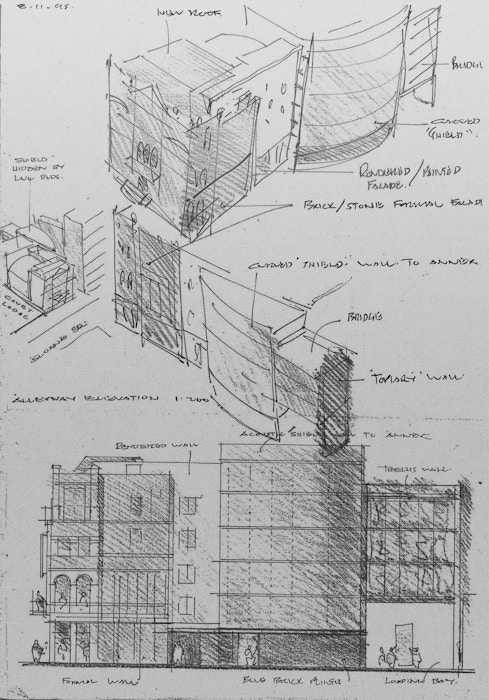 8.11.95.
NEW ROOF
BRIDGE
CURVED
"SHIELD".
RENDERED/PAINTED
FACADE.
BRICK/STONE FORMAL FACADE
SHIELD
HIDDEN BY
COURT
LODGE
SLOANE SQ.
CURVED "SHIELD" WALL TO ANNEX
BRIDGE
WALL
ALLEYWAY ELEVATION 1:200
RENDERED WALL
WALL TO ANNEX
TRELLIS WALL
FORMAL WALL
BLUE BRICK PLINTH
LOADING BAY.